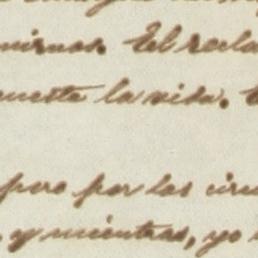 mismos. El recla
cueste la vida.
pero por las circ
y mientras, yo